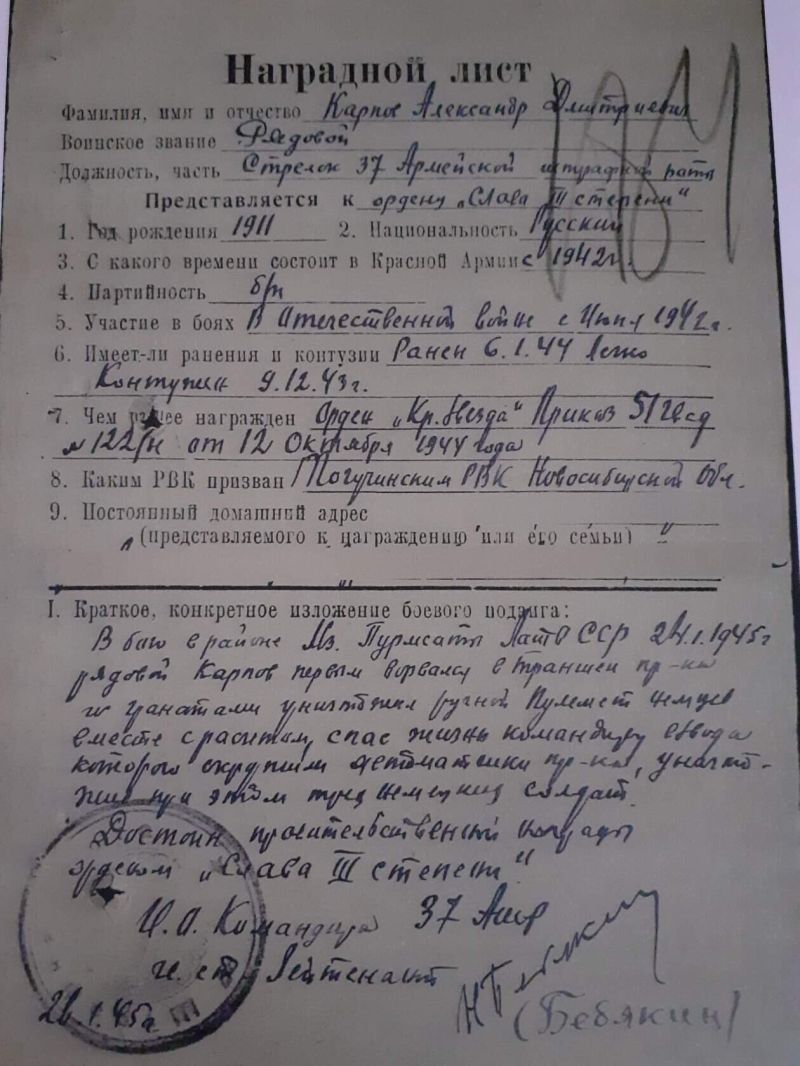 Наградной лист
Фамилия, имя и отчество Карпов Александр Дмитриевич
Воинское звание Рядовой
Должность, часть Стрелок 37 Армейской штрафной роты
Представляется к ордену „Слава III степени"
1. Год рождения 1911 2. Национальность Русский
3. С какого времени состоит в Красной Армии с 1942 г.
4. Партийность б/п
5. Участие в боях В Отечественной войне с Июня 1942 г.
6. Имеет-ли ранения и контузии Ранен 6.1.44 Легко
Контужен 9.12.43 г.
7. Чем ранее награжден Орден „Кр. Звезда" Приказ 51 гвсд
№ 122/н от 12 Октября 1944 года
8. Каким РВК призван Тогучинским РВК Новосибирской Обл.
9. Постоянный домашний адрес
(представляемого к награждению или его семьи)
I. Краткое, конкретное изложение боевого подвига:
В бою в районе Мз. Пурмсаты Латв ССР 24.1.1945 г
рядовой Карпов первым ворвался в траншеи пр-ка
и гранатами уничтожил ручной Пулемет немцев
вместе с расчетом, спас жизнь командиру взвода
которого окружили автоматчики пр-ка, уничто-
жив при этом трех немецких солдат.
Достоин правительственной награды
орденом „Слава III степени"
И.О. Командира 37 Ашр
гв. ст. Лейтенант
26.1.45 г
(Бебякин)